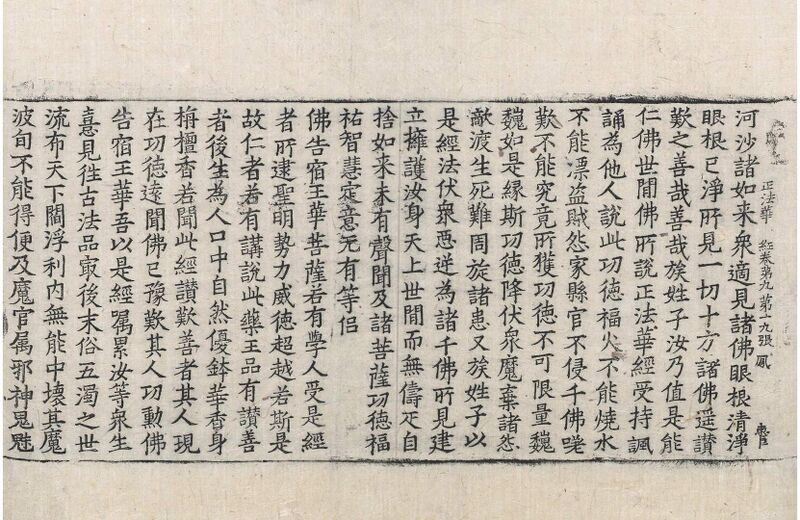 正法華 經卷第九 第十九張 鳳
河沙諸如来衆適見諸佛眼根清淨
眼根已淨所見一切十方諸佛遥讃
歎之善哉善哉族姓子汝乃值是能
仁佛世聞佛所說正法華經受持諷
誦為他人說此功德福火不能燒水
不能漂盗賊怨家縣官不侵千佛嗟
歎不能究竟所獲功德不可限量巍
巍如是緣斯功德降伏衆魔棄諸怨
敵渡生死難周旋諸患又族姓子以
是經法伏衆惡逆為諸千佛所見建
立擁護汝身天上世間而無儔疋自
捨如来未有聲聞及諸菩薩功德福
祐智慧定意无有等侣
佛告宿王華菩薩若有學人受是經
者所逮聖明勢力威德超越若斯是
故仁者若有講說此藥王品有讃善
者後生為人口中自然優鉢華香身
栴檀香若聞此經讃歎善者其人現
在功德逺聞佛已豫歎其人功勳佛
告宿王華吾以是經嘱累汝等衆生
憙見往古法品冣後末俗五濁之世
流布天下閻浮利內無能中壞其魔
波旬不能得便及魔官属邪神鬼魅